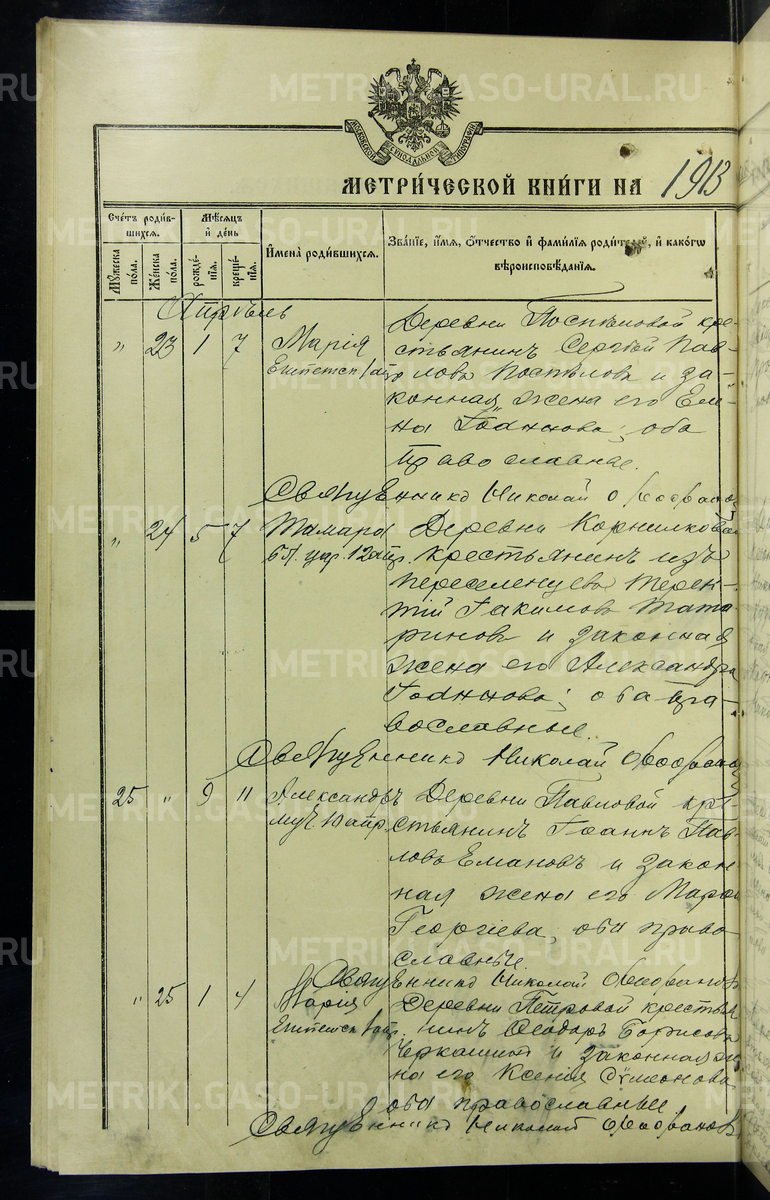 METRIK.GASO-URAL.RU
МОСКОВСКОЙ СѴНОДАЛЬНОЙ ТИПОГРАФІИ
МЕТРИ́ЧЕСКОЙ КНИ́ГИ НА 1913
Сче́тъ роди́в-
шихся.
Мꙋ́жеска
по́ла.
Же́нска
по́ла.
Мѣ́сяцъ
и҆ де́нь
рожде́-
нїѧ.
креще́-
нїѧ.
И҆мена̀ роди́вшихсѧ.
Зва́нїе, и҆́мѧ, о҆́тчество и҆ фами́лїѧ роди́телей, и҆ како́гѡ
вѣроисповѣ́данїѧ.
Апрѣль
" 23 1 7
Марія
Египетск 1 апр
Деревни Поспѣловой кре-
стьянинъ Сергѣй Пав-
ловъ Поспѣловъ и за-
конная жена его Еле-
на Іоаннова; оба
православные.
Священникъ Николай
" 24 5 7
Тамара
12 апр.
Деревни Корнилковой
крестьянинъ изъ
переселенцевъ Терен-
тій Іакимовъ Тата-
риновъ и законная
жена его Александра
Іоаннова; оба пра-
вославные.
Священникъ Николай
25 " 9 11
Александръ
муч. 10 апр
Деревни Павловой кре-
стьянинъ Іоаннъ Пав-
ловъ Емановъ и закон
ная жена его
Георгіева, оба право
славные.
Священникъ Николай
" 25 1 4
Марія
Египетск 1 апр.
Деревни Петровой крестья
нинъ Ѳеодоръ Борисовъ
и законная же
на его Ксенія Сѵмеонова
оба православные
Священникъ Николай